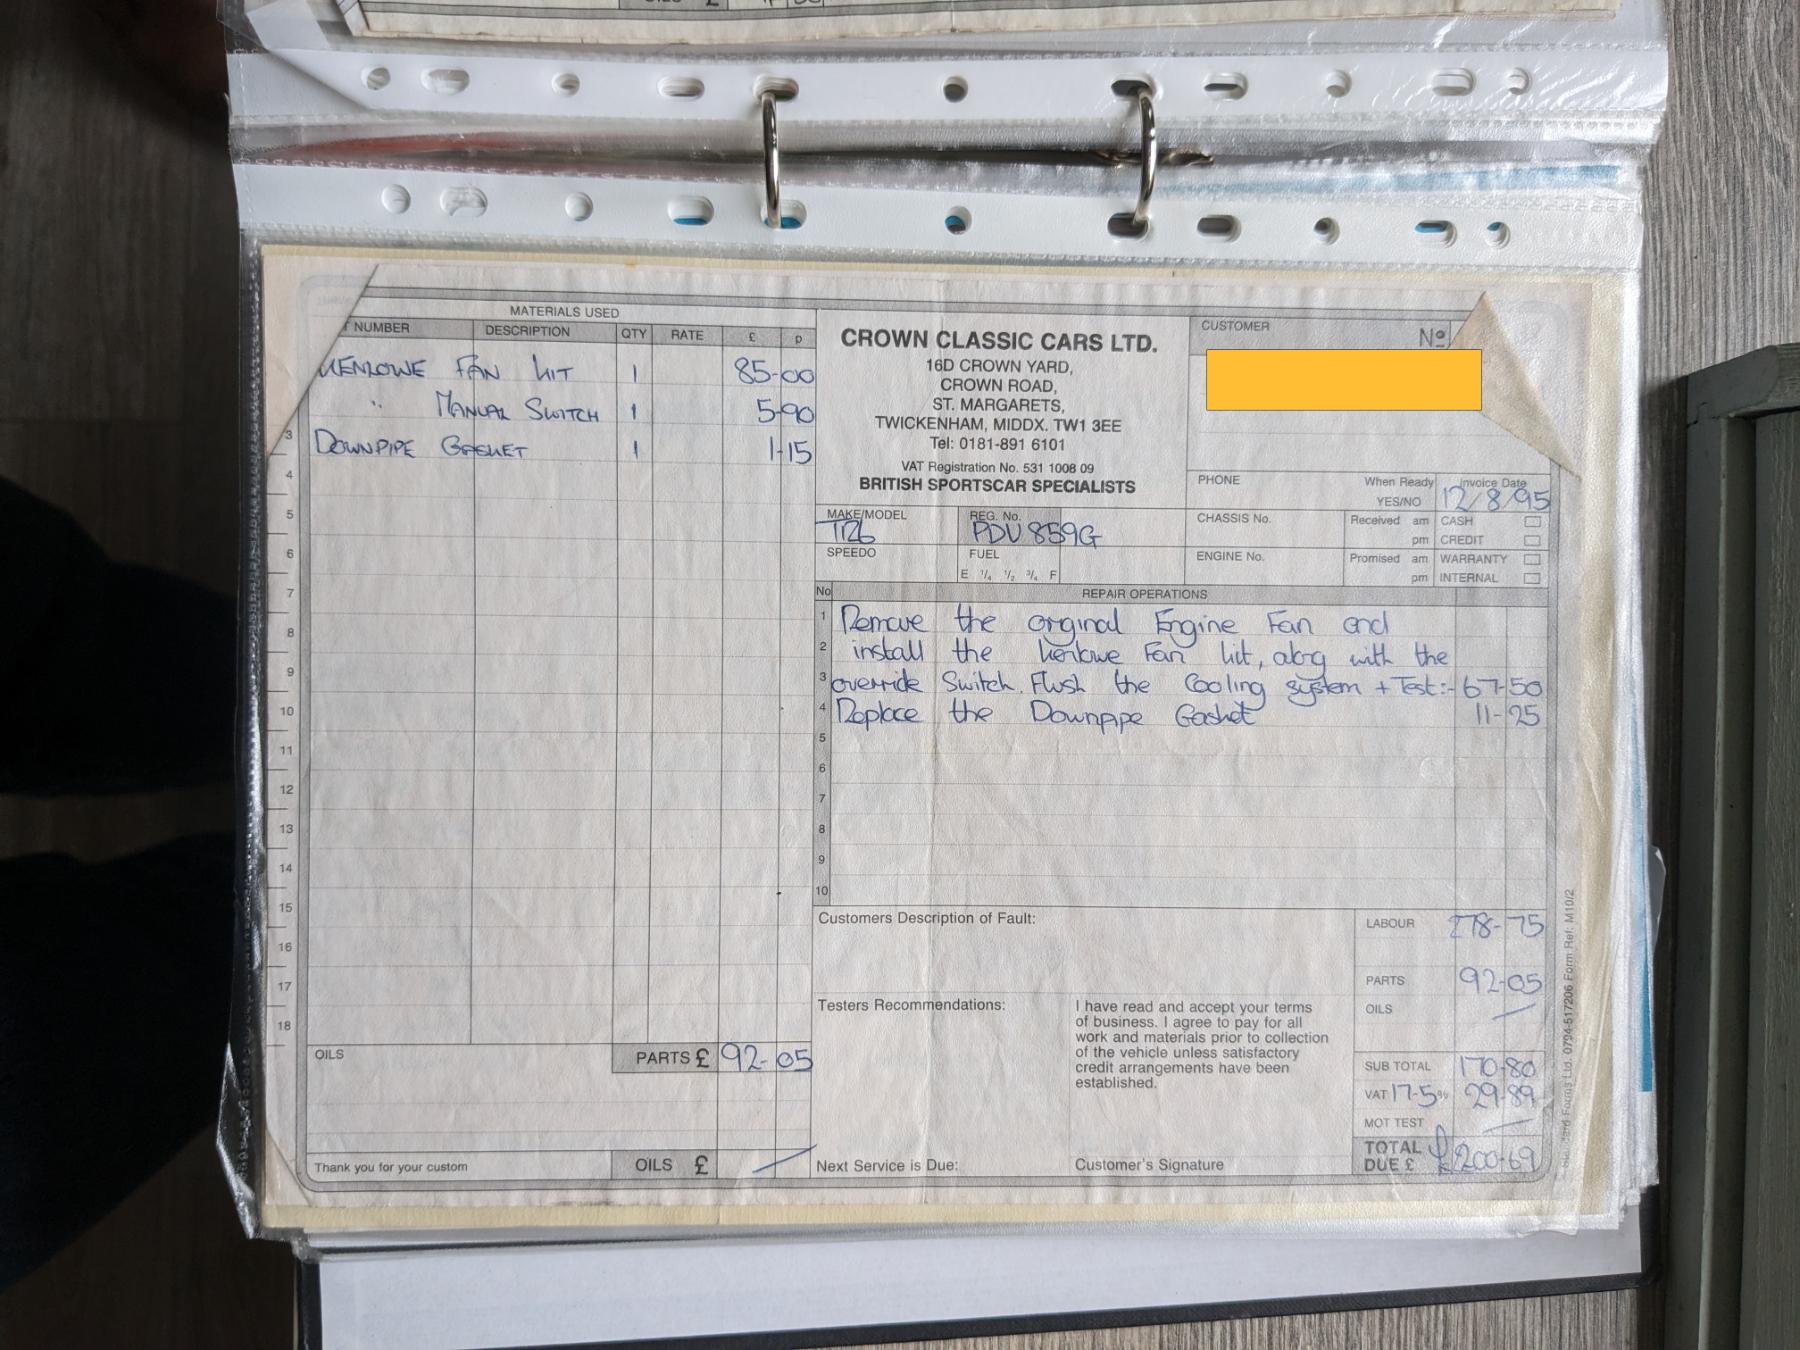 OILS £
MATERIALS USED
NUMBER DESCRIPTION QTY RATE £ p
KENLOWE FAN KIT 1 85-00
" MANUAL SWITCH 1 5-90
3 DOWNPIPE GASKET 1 1-15
4
5
6
7
8
9
10
11
12
13
14
15
16
17
18
OILS PARTS £ 92-05
Thank you for your custom OILS £
CROWN CLASSIC CARS LTD.
16D CROWN YARD,
CROWN ROAD,
ST. MARGARETS,
TWICKENHAM, MIDDX. TW1 3EE
Tel: 0181-891 6101
VAT Registration No. 531 1008 09
BRITISH SPORTSCAR SPECIALISTS
CUSTOMER Nº
PHONE When Ready YES/NO Invoice Date 12/8/95
MAKE/MODEL TR6 REG. No. PDU 859G CHASSIS No. Received am pm CASH CREDIT
SPEEDO FUEL E ¼ ½ ¾ F ENGINE No. Promised am pm WARRANTY INTERNAL
No REPAIR OPERATIONS
1 Remove the original Engine Fan and
2 install the Kenlowe Fan kit, along with the
3 override Switch. Flush the Cooling system + Test:- 67-50
4 Replace the Downpipe Gasket 11-25
5
6
7
8
9
10
Customers Description of Fault:
Testers Recommendations:
I have read and accept your terms
of business. I agree to pay for all
work and materials prior to collection
of the vehicle unless satisfactory
credit arrangements have been
established.
Next Service is Due: Customer's Signature
LABOUR £78-75
PARTS 92-05
OILS
SUB TOTAL 170-80
VAT 17-5% 29-89
MOT TEST
TOTAL DUE £ £200-69
Forms Ltd. 0794-517206 Form Ref. M10/2